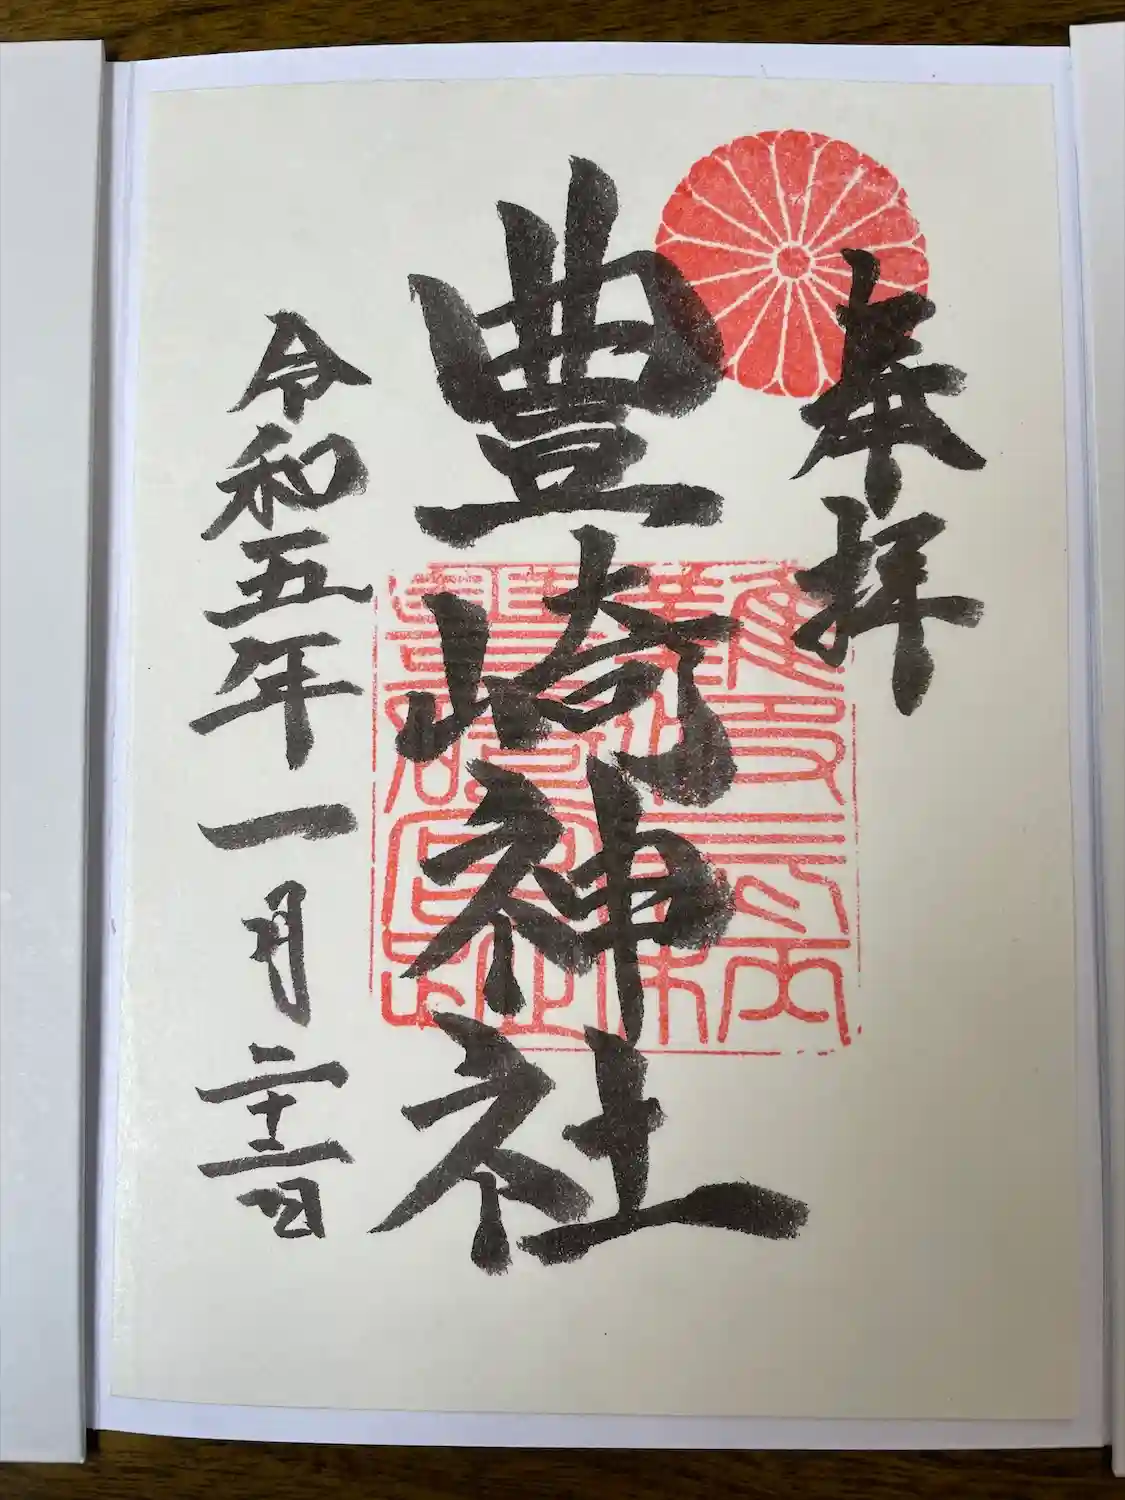 奉拝
豊崎神社
令和五年一月二十二日